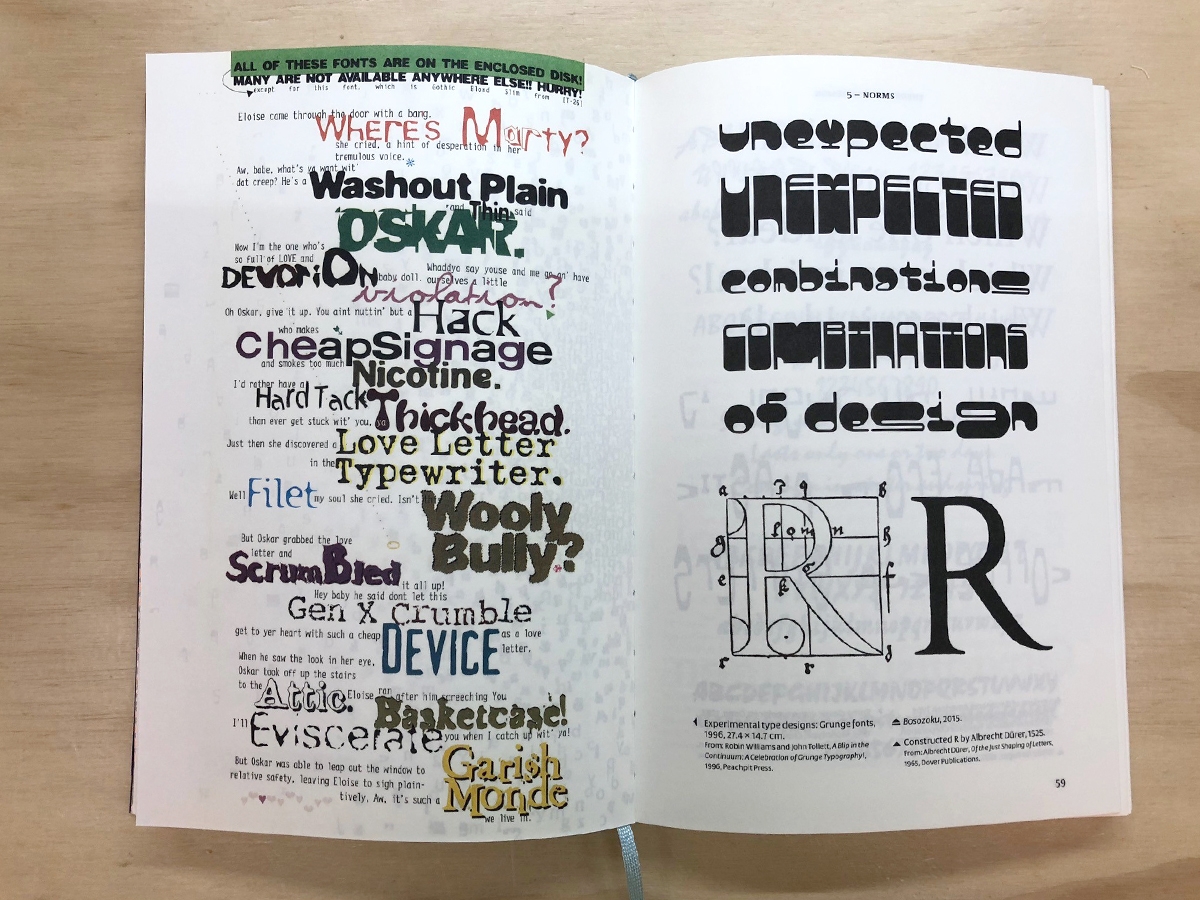 ALL OF THESE FONTS ARE ON THE ENCLOSED DISK!
MANY ARE NOT AVAILABLE ANYWHERE ELSE!! HURRY!
except for this font, which is Gothic Blond Slim from [T-26]
Eloise came through the door with a bang.
WHERE'S Marty?
she cried, a hint of desperation in her
tremulous voice.
Aw, babe, what's ya want wit'
dat creep? He's a
Washout Plain
and Thin, said
OSKAR.
Now I'm the one who's
so full of LOVE and
DEVOTION
baby doll. Whaddya say youse and me go an' have
ourselves a little
violation?
Oh Oskar, give it up. You aint nuttin' but a
Hack
who makes
CheapSignage
and smokes too much
Nicotine.
I'd rather have a
Hard Tack
than ever get stuck wit' you, ya
Thickhead.
Just then she discovered a
Love Letter
in the
Typewriter.
Well
Filet
my soul she cried. Isn't this
Wooly
Bully?
But Oskar grabbed the love
letter and
ScrumBled
it all up!
Hey baby he said dont let this
Gen X Crumble
get to yer heart with such a cheap
DEVICE
as a love
letter.
When he saw the look in her eye,
Oskar took off up the stairs
to the
Attic.
Eloise ran after him screeching You
Basketcase!
I'll
Eviscerate
you when I catch up wit' ya!
But Oskar was able to leap out the window to
relative safety, leaving Eloise to sigh plain-
tively, Aw, it's such a
Garish
Monde
we live in.
5 – NORMS
unexpected
UNEXPECTED
combinations
COMBINATIONS
of design
R
Experimental type designs: Grunge fonts,
1996, 27.4 × 14.7 cm.
From: Robin Williams and John Tollett, A Blip in the
Continuum: A Celebration of Grunge Typography!,
1996, Peachpit Press.
Bosozoku, 2015.
Constructed R by Albrecht Dürer, 1525.
From: Albrecht Dürer, Of the Just Shaping of Letters,
1965, Dover Publications.
59